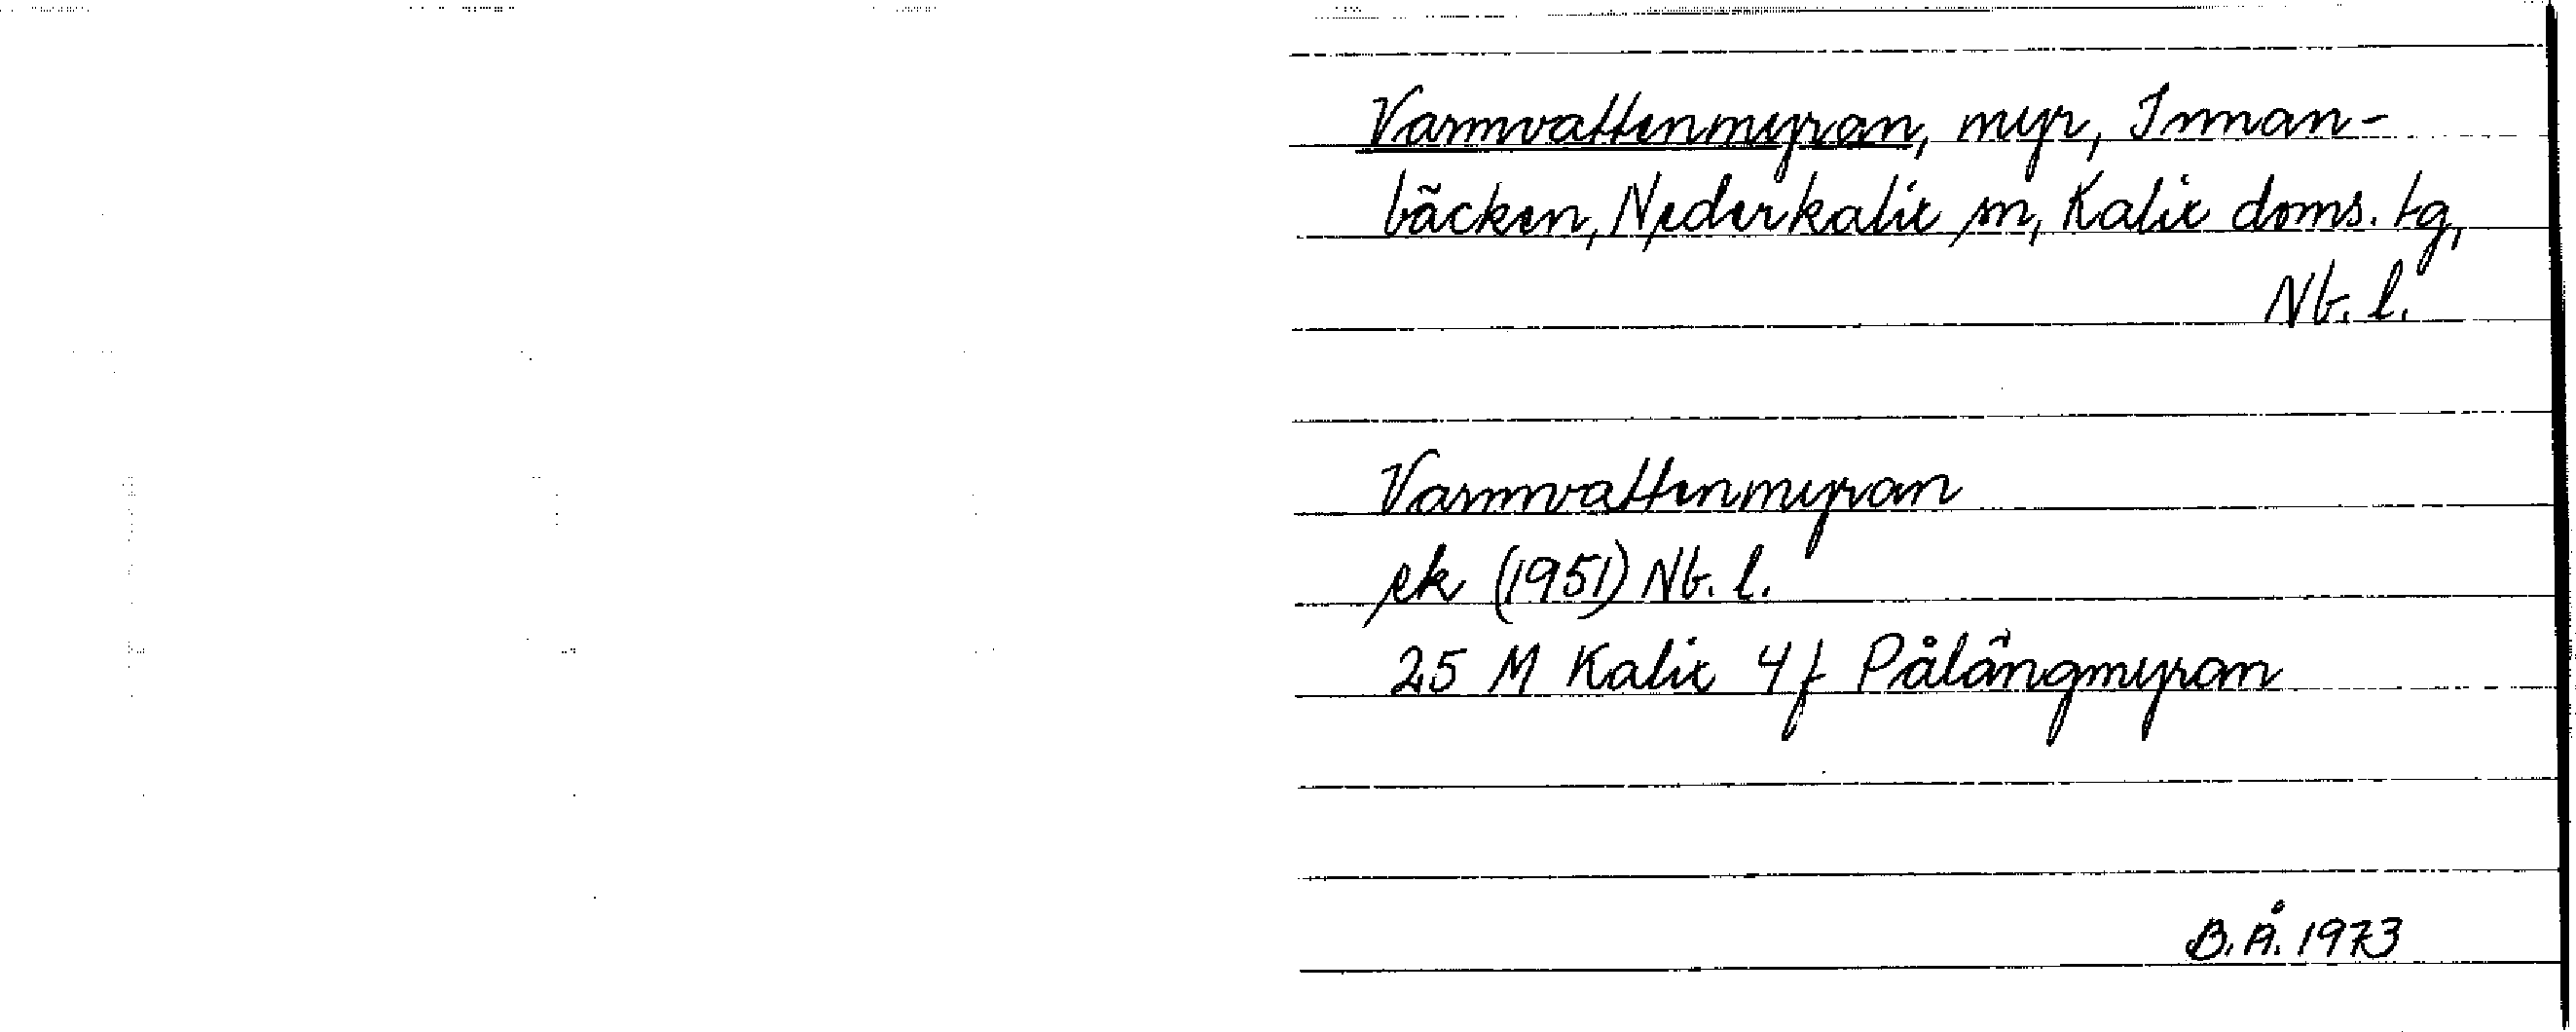 Varmvattenmyran, myr, Innan-
bäcken, Nederkalix sn, Kalix doms. tg,
Nb. l.
Varmvattenmyran
ek (1951) Nb. l.
25 M Kalix 4 f Pålängmyran
B. Å. 1973